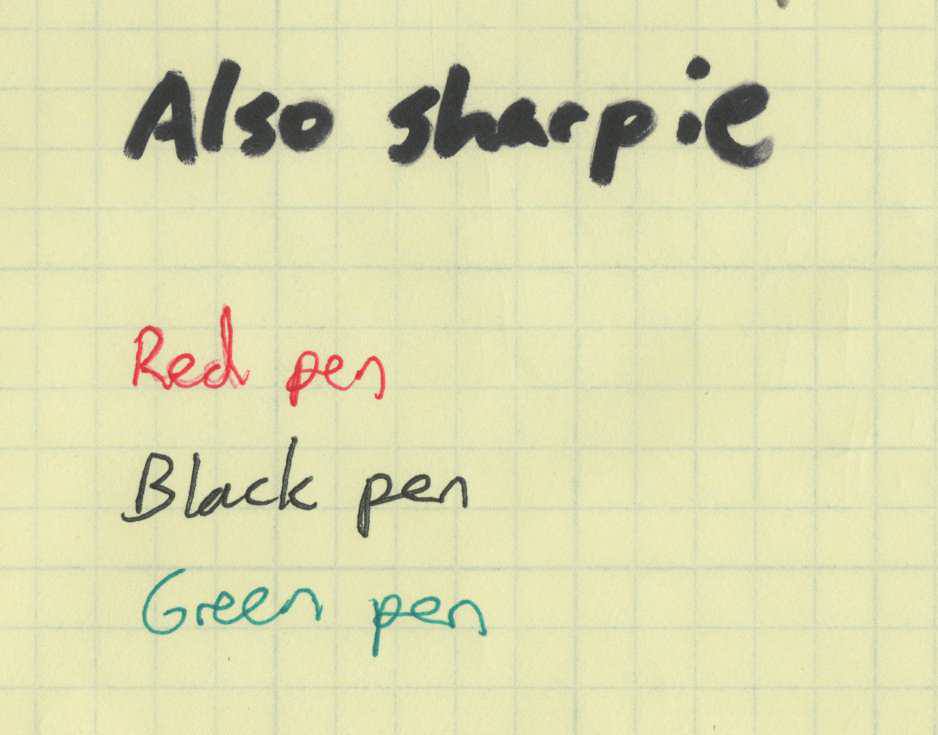 Also sharpie
Red pen
Black pen
Green pen